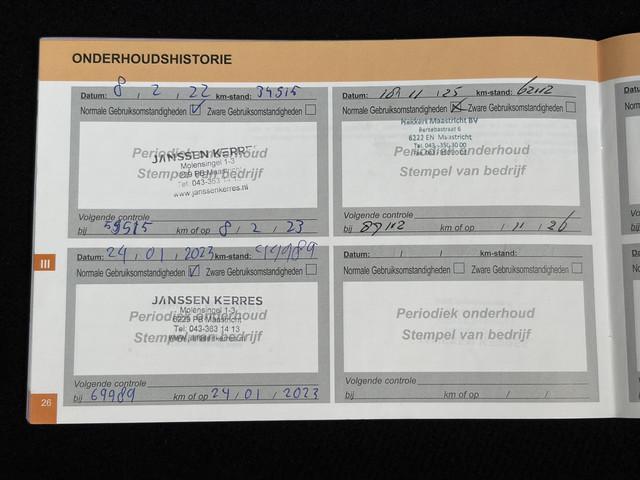 ONDERHOUDSHISTORIE
Datum: 8 / 2 / 22 km-stand: 34515
Normale Gebruiksomstandigheden Zware Gebruiksomstandigheden
Periodiek onderhoud
Stempel van bedrijf
JANSSEN KERRES
Molensingel 1-3
6229 PB Maastricht
Tel. 043-363 14 13
www.janssenkerres.nl
Volgende controle
bij 59515 km of op 8 / 2 / 23
/ 11 / 25 km-stand: 62112
Normale Gebruiksomstandigheden Zware Gebruiksomstandigheden
Hekkert Maastricht BV
6222 EN Maastricht
Periodiek onderhoud
Stempel van bedrijf
Volgende controle
bij km of op / 11 / 26
Datum: 24 / 01 / 2023 km-stand: 44989
Normale Gebruiksomstandigheden Zware Gebruiksomstandigheden
JANSSEN KERRES
Molensingel 1-3
6229 PB Maastricht
Tel: 043-363 14 13
www.janssenkerres.nl
Periodiek onderhoud
Stempel van bedrijf
Volgende controle
bij 69989 km of op 24 / 01 / 2023
Datum: / / km-stand:
Normale Gebruiksomstandigheden Zware Gebruiksomstandigheden
Periodiek onderhoud
Stempel van bedrijf
Volgende controle
bij km of op / /
III
26